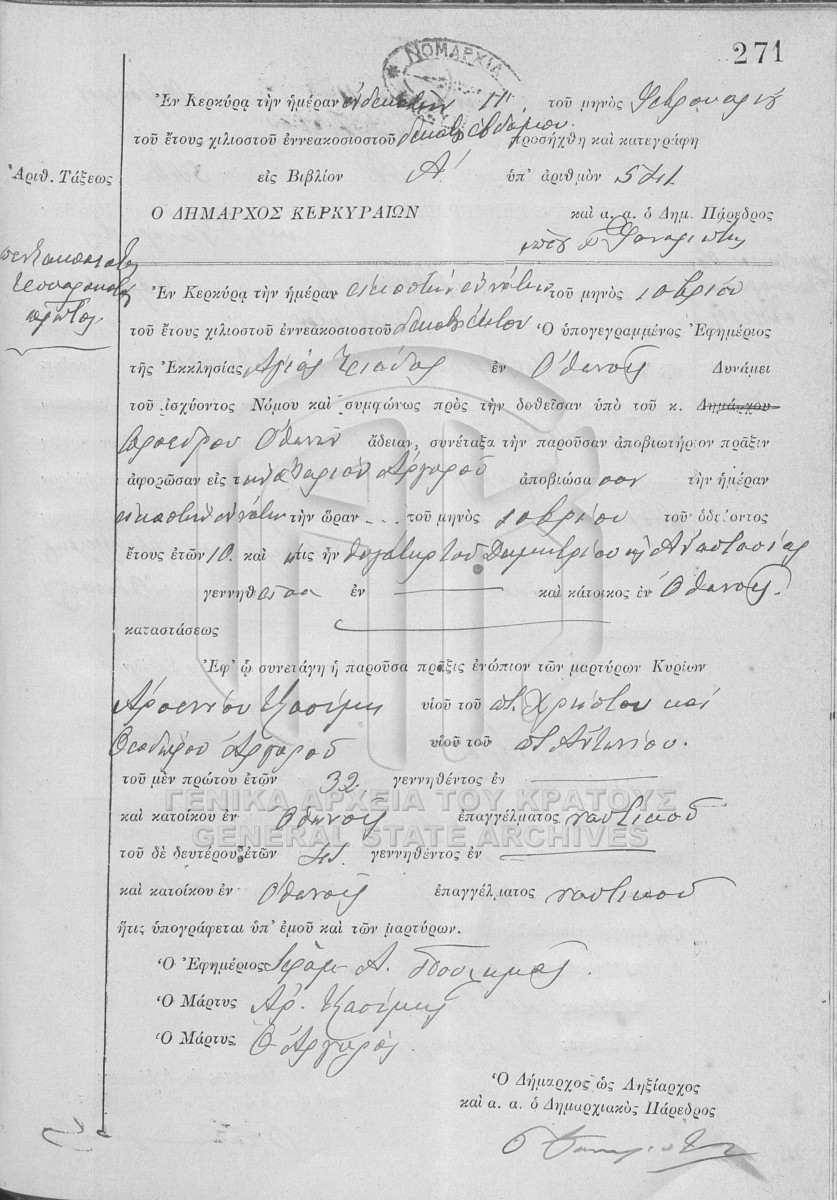 271
ΝΟΜΑΡΧΙΑ
Ἐν Κερκύρᾳ τὴν ἡμέραν ἑνδεκάτην 11 τοῦ μηνὸς Φεβρουαρίου
τοῦ ἔτους χιλιοστοῦ ἐννεακοσιοστοῦ δεκάτου ἑβδόμου προσήχθη καὶ κατεγράφη
Ἀριθ. Τάξεως
εἰς Βιβλίον Α΄ ὑπ' ἀριθμὸν 541
Ο ΔΗΜΑΡΧΟΣ ΚΕΡΚΥΡΑΙΩΝ καὶ α. α. ὁ Δημ. Πάρεδρος
πεντακοσιοστὸν
τεσσαρακοστὸν
πρῶτον
Ἐν Κερκύρᾳ τὴν ἡμέραν εἰκοστὴν ἐννάτην τοῦ μηνὸς 10βρίου
τοῦ ἔτους χιλιοστοῦ ἐννεακοσιοστοῦ δεκάτου ἕκτου Ὁ ὑπογεγραμμένος Ἐφημέριος
τῆς Ἐκκλησίας Ἁγίας Τριάδος ἐν Ὀθωνοῖς Δυνάμει
τοῦ ἰσχύοντος Νόμου καὶ συμφώνως πρὸς τὴν δοθεῖσαν ὑπὸ τοῦ κ. Δημάρχου
Προέδρου Ὀθωνῶν ἄδειαν, συνέταξα τὴν παροῦσαν ἀποβιωτήριον πρᾶξιν
ἀφορῶσαν εἰς τὴν Ἀργυροῦ ἀποβιώσασαν τὴν ἡμέραν
εἰκοστὴν ἐννάτην τὴν ὥραν - - . τοῦ μηνὸς 10βρίου τοῦ ὁδεύοντος
ἔτους ἐτῶν 10. καὶ ἥτις ἦν θυγάτηρ τοῦ Δημητρίου κ Ἀναστασίας
γεννηθεῖσα ἐν καὶ κάτοικος ἐν Ὀθωνοῖς.
καταστάσεως
Ἐφ' ᾧ συνετάγη ἡ παροῦσα πρᾶξις ἐνώπιον τῶν μαρτύρων Κυρίων
Ἀρσενίου Κασίμη υἱοῦ τοῦ π. Χρήστου καὶ
Θεοδώρου Ἀργυροῦ υἱοῦ τοῦ π. Ἀντωνίου.
τοῦ μὲν πρώτου ἐτῶν 32 γεννηθέντος ἐν
καὶ κατοίκου ἐν Ὀθωνοῖς ἐπαγγέλματος ναυτικοῦ
ΓΕΝΙΚΑ ΑΡΧΕΙΑ ΤΟΥ ΚΡΑΤΟΥΣ
GENERAL STATE ARCHIVES
τοῦ δὲ δευτέρου ἐτῶν 41 γεννηθέντος ἐν
καὶ κατοίκου ἐν Ὀθωνοῖς ἐπαγγέλματος ναυτικοῦ
ἥτις ὑπογράφεται ὑπ' ἐμοῦ καὶ τῶν μαρτύρων.
Ὁ Ἐφημέριος Α.
Ὁ Μάρτυς Ἀρ. Κασίμης
Ὁ Μάρτυς Θ Ἀργυρός.
Ὁ Δήμαρχος ὡς Ληξίαρχος
καὶ α. α. ὁ Δημαρχιακὸς Πάρεδρος